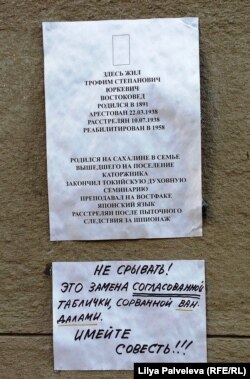 ЗДЕСЬ ЖИЛ
ТРОФИМ СТЕПАНОВИЧ
ЮРКЕВИЧ
ВОСТОКОВЕД
РОДИЛСЯ В 1891
АРЕСТОВАН 22.03.1938
РАССТРЕЛЯН 10.07.1938
РЕАБИЛИТИРОВАН В 1958
РОДИЛСЯ НА САХАЛИНЕ В СЕМЬЕ
ВЫШЕДШЕГО НА ПОСЕЛЕНИЕ
КАТОРЖНИКА
ЗАКОНЧИЛ ТОКИЙСКУЮ ДУХОВНУЮ
СЕМИНАРИЮ
ПРЕПОДАВАЛ НА ВОСТФАКЕ
ЯПОНСКИЙ ЯЗЫК
РАССТРЕЛЯН ПОСЛЕ ПЫТОЧНОГО
СЛЕДСТВИЯ ЗА ШПИОНАЖ
НЕ СРЫВАТЬ!
ЭТО ЗАМЕНА СОГЛАСОВАННОЙ
ТАБЛИЧКИ, СОРВАННОЙ ВАН-
ДАЛАМИ.
ИМЕЙТЕ
СОВЕСТЬ!!!
Liliya Palveleva (RFE/RL)